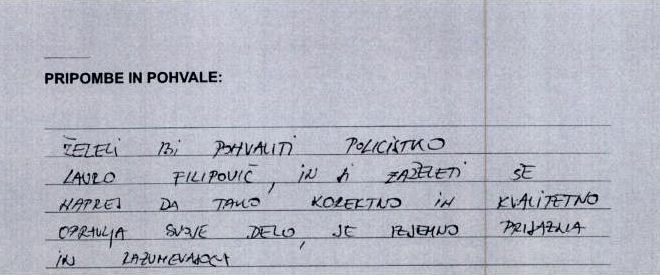 PRIPOMBE IN POHVALE:
ŽELELI BI POHVALITI POLICISTKO
LAURO FILIPOVIČ, IN JI ZAŽELETI ŠE
NAPREJ DA TAKO KOREKTNO IN KVALITETNO
OPRAVLJA SVOJE DELO, JE IZJEMNO PRIJAZNA
IN RAZUMEVAJOČA